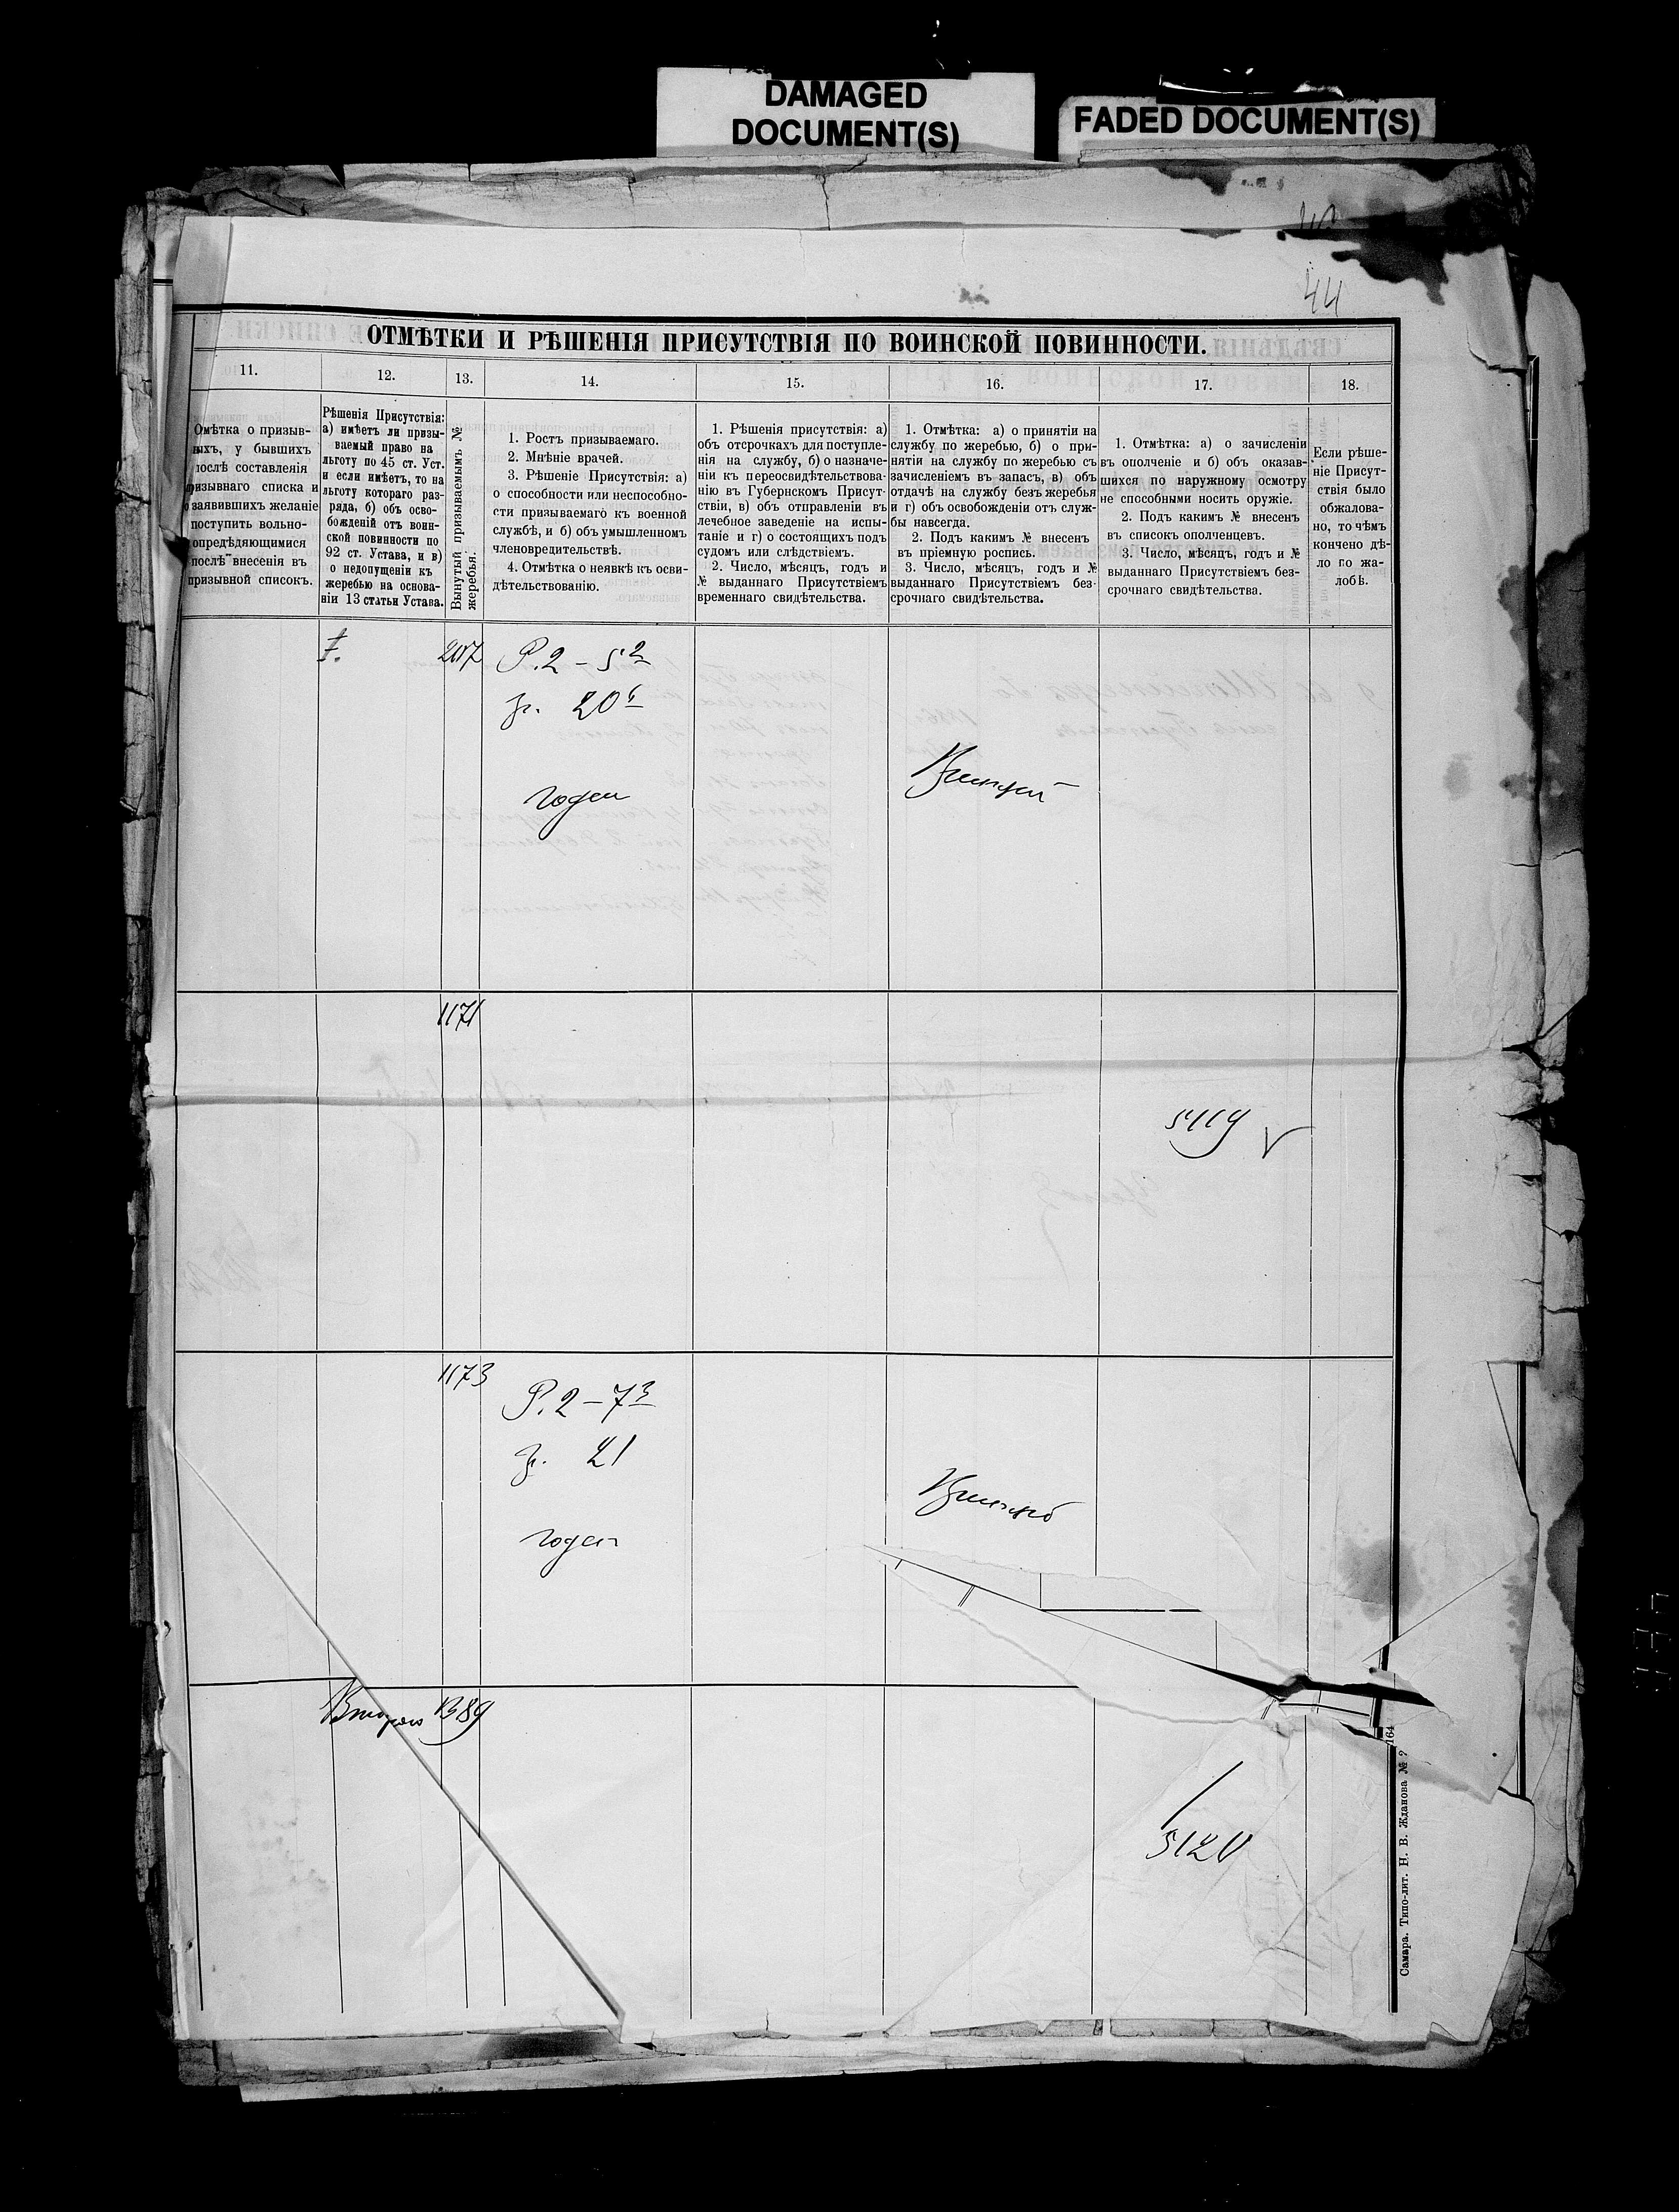 DAMAGED
DOCUMENT(S)
FADED DOCUMENT(S)
44
ОТМѢТКИ И РѢШЕНІЯ ПРИСУТСТВІЯ ПО ВОИНСКОЙ ПОВИННОСТИ.
11.
Омѣтка о призыв-
ыхъ, у бывшихъ
послѣ составленія
ризывнаго списка и
заявившихъ желаніе
поступить вольно-
опредѣляющимися
послѣ внесенія въ
призывной списокъ.
12.
Рѣшенія Присутствія:
а) имѣетъ ли призы-
ваемый право на
льготу по 45 ст. Уст.
и если имѣетъ, то на
льготу котораго раз-
ряда, б) объ осво-
божденій отъ воин-
ской повинности по
92 ст. Устава, и в)
о недопущеніи къ
жеребью на основа-
ніи 13 статьи Устава.
13.
Вынутый призываемымъ №
жеребья.
14.
1. Ростъ призываемаго.
2. Мнѣніе врачей.
3. Рѣшеніе Присутствія: а)
о способности или неспособно-
сти призываемаго къ военной
службѣ, и б) объ умышленномъ
членовредительствѣ.
4. Отмѣтка о неявкѣ къ осви-
дѣтельствованію.
15.
1. Рѣшенія присутствія: а)
объ отсрочкахъ для поступле-
нія на службу, б) о назначе-
ніи къ переосвидѣтельствова-
нію въ Губернскомъ Присут-
ствіи, в) объ отправленіи въ
лечебное заведеніе на испы-
таніе и г) о состоящихъ подъ
судомъ или слѣдствіемъ.
2. Число, мѣсяцъ, годъ и
№ выданнаго Присутствіемъ
временнаго свидѣтельства.
16.
1. Отмѣтка: а) о принятіи на
службу по жеребью, б) о при-
нятіи на службу по жеребью съ
зачисленіемъ въ запасъ, в) объ
отдачѣ на службу безъ жеребья
и г) объ освобожденіи отъ служ-
бы навсегда.
2. Подъ какимъ № внесенъ
въ пріемную роспись.
3. Число, мѣсяцъ, годъ и №
выданнаго Присутствіемъ без-
срочнаго свидѣтельства.
17.
1. Отмѣтка: а) о зачисленіи
въ ополченіе и б) объ оказав-
шихся по наружному осмотру
не способными носить оружіе.
2. Подъ какимъ № внесенъ
въ списокъ ополченцевъ.
3. Число, мѣсяцъ, годъ и №
выданнаго Присутствіемъ без-
срочнаго свидѣтельства.
18.
Если рѣше-
ніе Присут-
ствія было
обжалова-
но, то чѣмъ
кончено дѣ-
ло по жа-
лобѣ.
I.
Р. 2 – 5 2
20
годен
1171
1173
Р. 2 – 7 3
21
годен
Второго
Самара. Типо-лит. Н. В. Жданова №
164